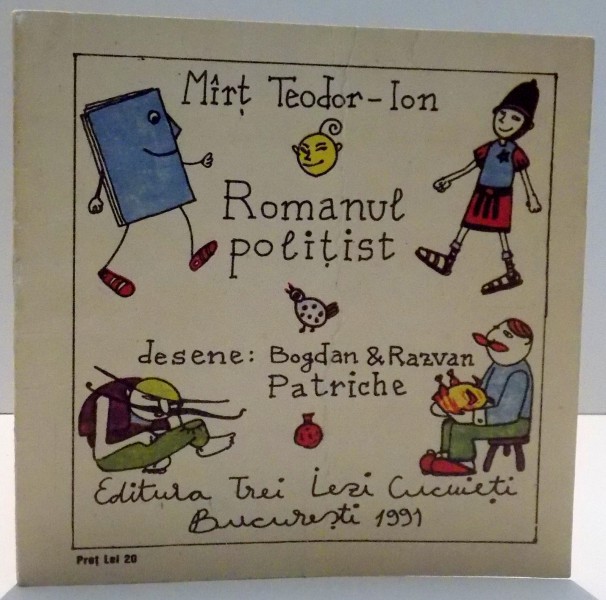 Mîrț Teodor-Ion
Romanul
polițist
desene: Bogdan & Razvan
Patriche
Editura Trei Iezi Cucuieți
București 1991
Preț Lei 20